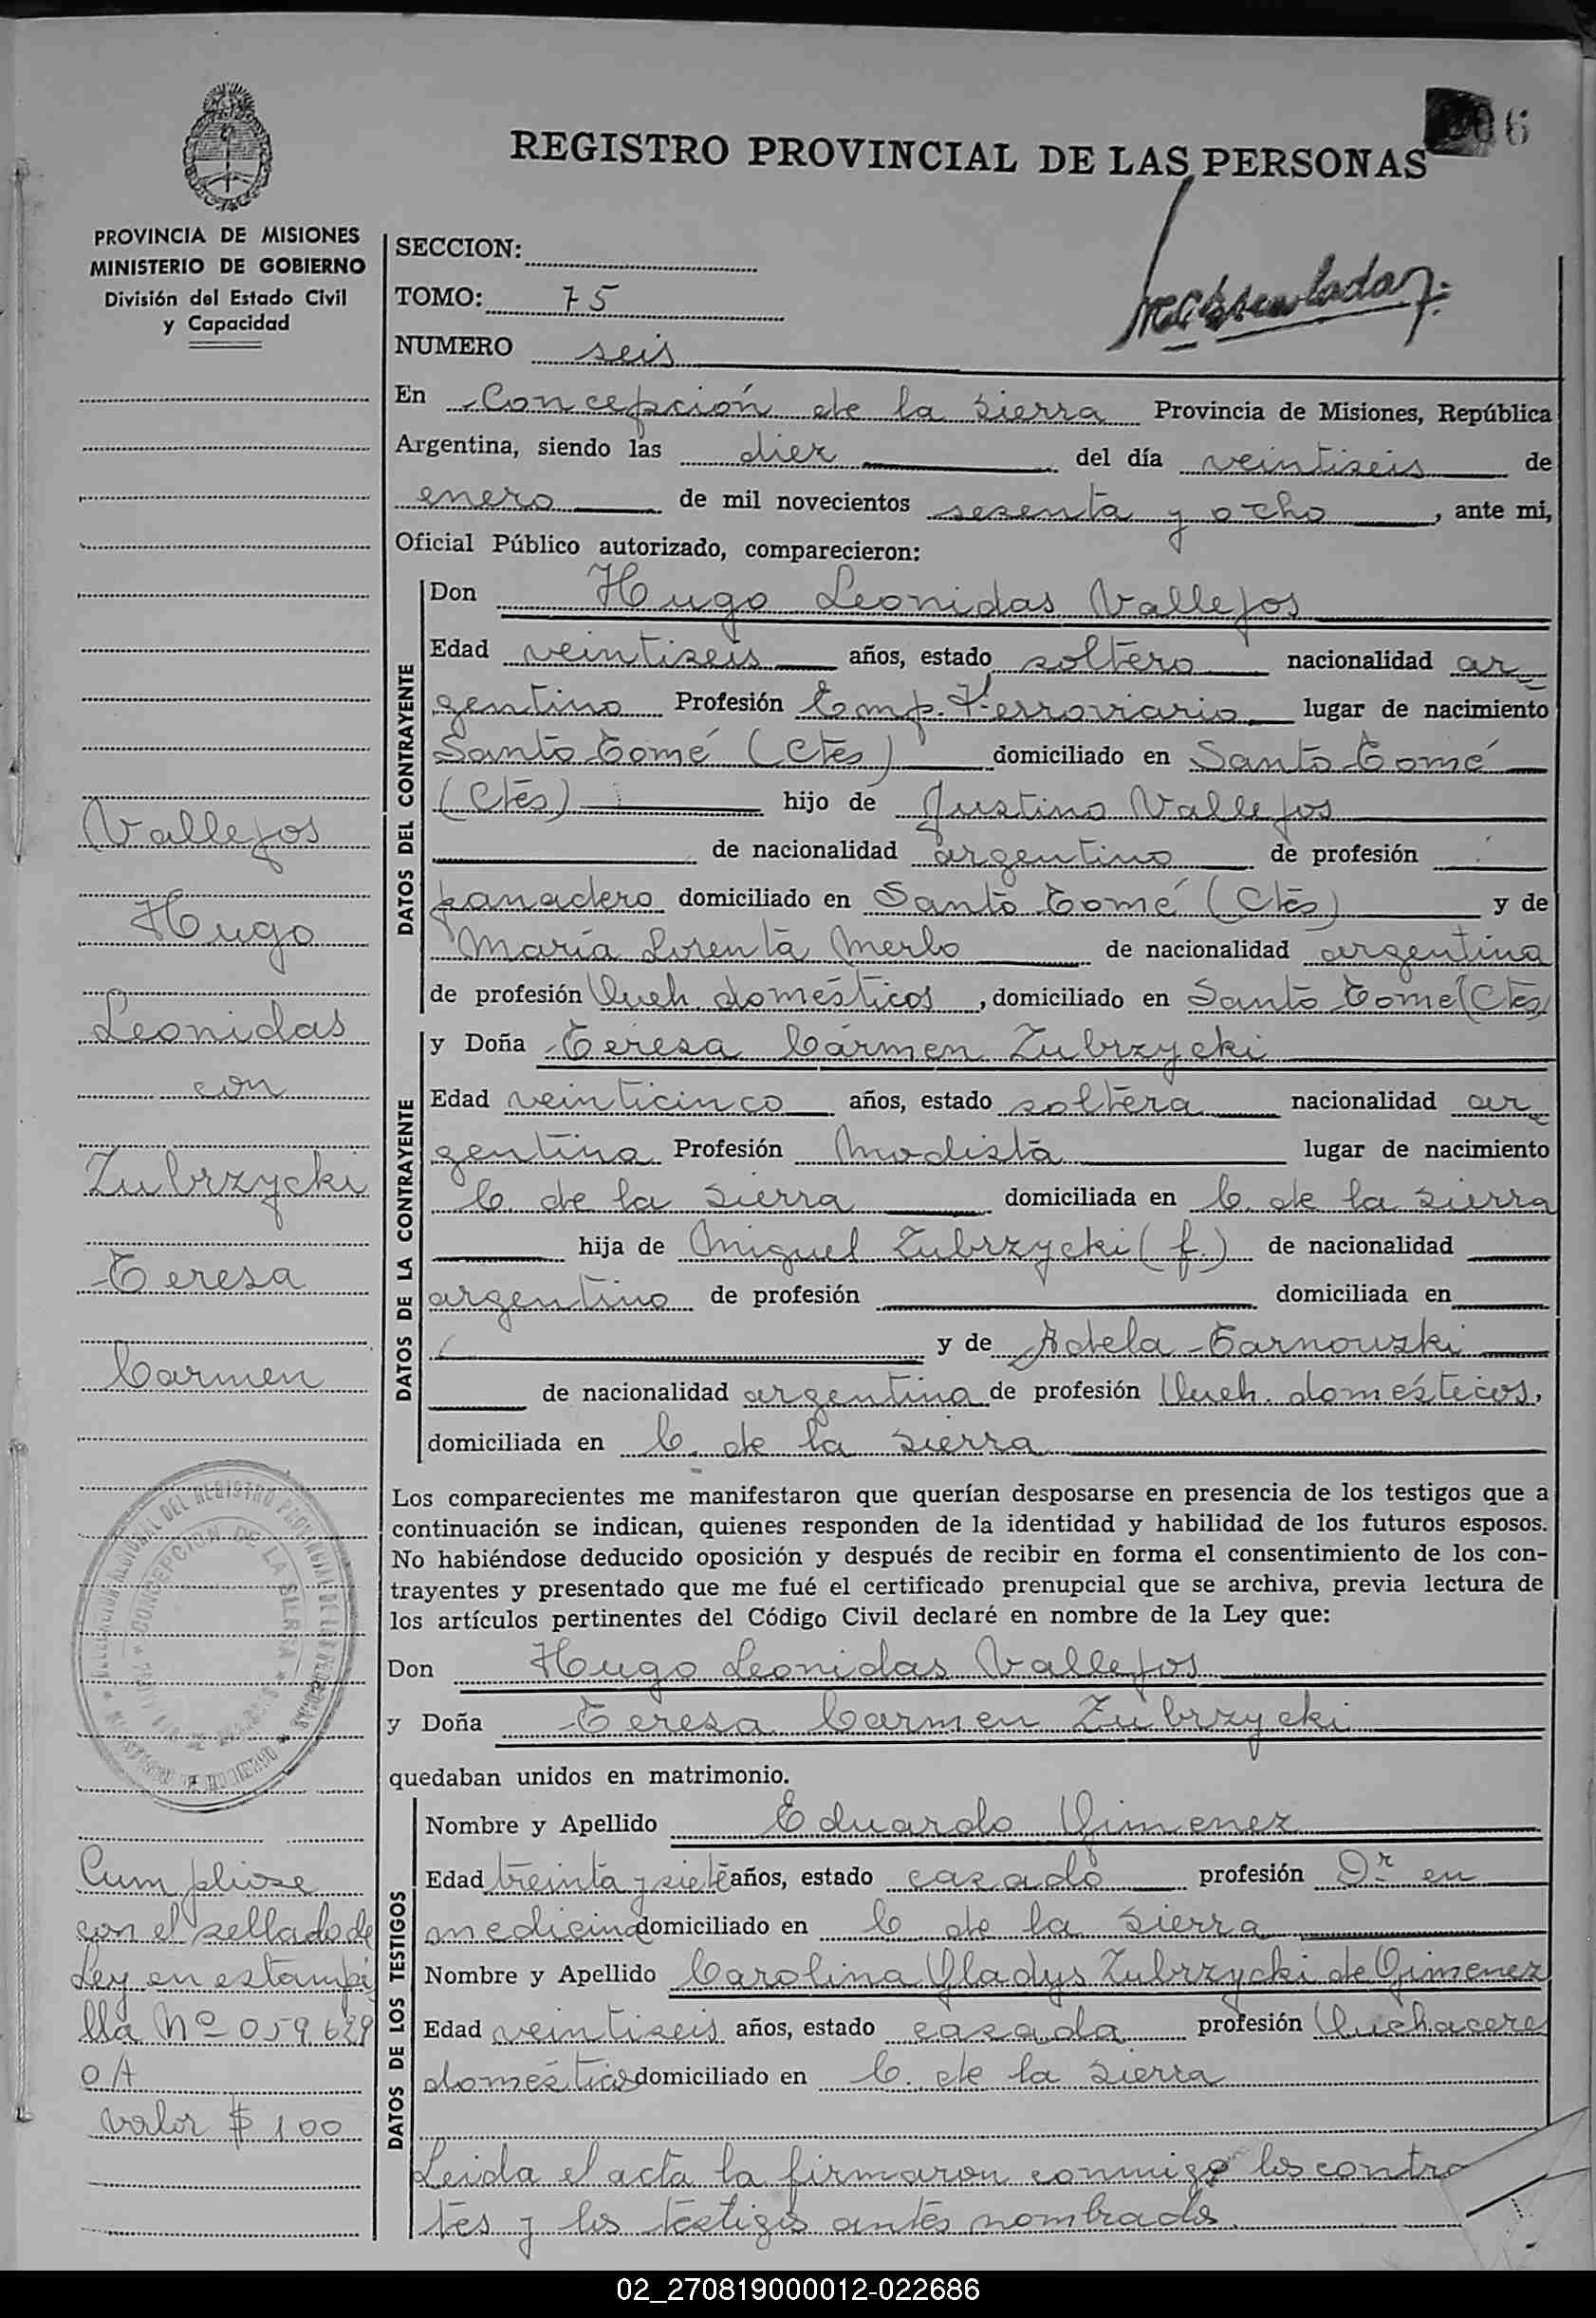 06
REGISTRO PROVINCIAL DE LAS PERSONAS
PROVINCIA DE MISIONES
MINISTERIO DE GOBIERNO
División del Estado Civil
y Capacidad
SECCION:
TOMO: 75
NUMERO seis
En Concepción de la Sierra Provincia de Misiones, República
Argentina, siendo las diez del día veintiseis de
enero de mil novecientos sesenta y ocho, ante mi,
Oficial Público autorizado, comparecieron:
DATOS DEL CONTRAYENTE
Don Hugo Leonidas Vallejos
Edad veintiseis años, estado soltero nacionalidad ar
gentino Profesión Emp. Ferroviario lugar de nacimiento
Santo Tomé (Ctes) domiciliado en Santo Tomé
(Ctes) hijo de Justino Vallejos
de nacionalidad argentino de profesión
panadero domiciliado en Santo Tomé (Ctes) y de
María Lorenta Merlo de nacionalidad argentina
de profesión Queh. domésticos, domiciliado en Santo Tomé (Ctes)
DATOS DE LA CONTRAYENTE
y Doña Teresa Carmen Zubrzycki
Edad veinticinco años, estado soltera nacionalidad ar
gentina Profesión Modista lugar de nacimiento
C. de la Sierra domiciliada en C. de la Sierra
hija de Miguel Zubrzycki (f.) de nacionalidad
argentino de profesión domiciliada en
y de Adela Tarnouski
de nacionalidad argentina de profesión Queh. domésticos,
domiciliada en C. de la Sierra
Los comparecientes me manifestaron que querían desposarse en presencia de los testigos que a
continuación se indican, quienes responden de la identidad y habilidad de los futuros esposos.
No habiéndose deducido oposición y después de recibir en forma el consentimiento de los con-
trayentes y presentado que me fué el certificado prenupcial que se archiva, previa lectura de
los artículos pertinentes del Código Civil declaré en nombre de la Ley que:
Don Hugo Leonidas Vallejos
y Doña Teresa Carmen Zubrzycki
quedaban unidos en matrimonio.
DATOS DE LOS TESTIGOS
Nombre y Apellido Eduardo Gimenez
Edad treinta y siete años, estado casado profesión Dr. en
medicina domiciliado en C. de la Sierra
Nombre y Apellido Carolina Gladys Zubrzycki de Gimenez
Edad veintiseis años, estado casada profesión Quehacere
domésticos domiciliado en C. de la Sierra
Leida el acta la firmaron conmigo los contra
tes y los testigos antes nombrados.
Vallejos
Hugo
Leonidas
con
Zubrzycki
Teresa
Carmen
CONCEPCION DE LA SIERRA
Cumpliose
con el sellado de
Ley en estampi
lla Nº 059.629
0A
valor $ 100
02_270819000012-022686